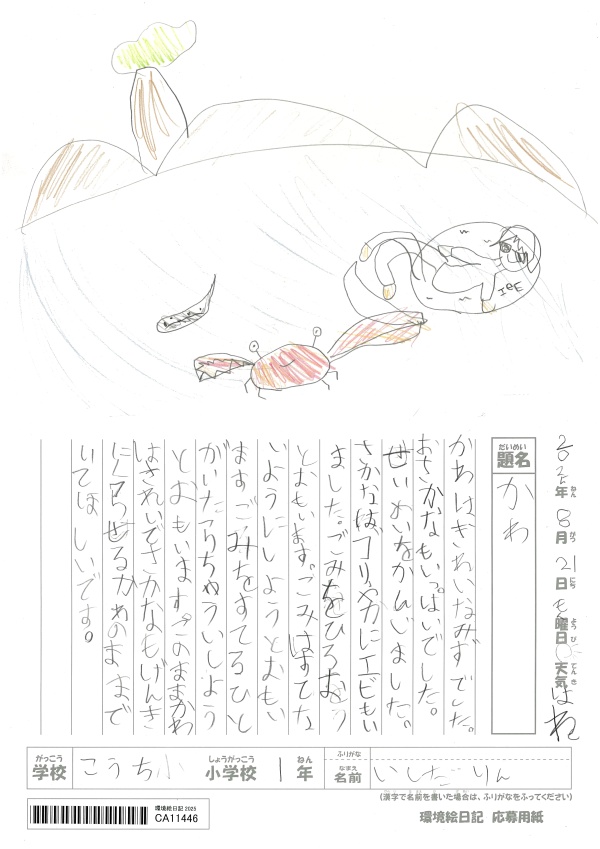 2025年 8月 21日 も曜日 天気 はれ
ねん がつ にち よう び てんき
だいめい
題名 かわ
かわはきれいなみずでした。
おさかなもいっぱいでした。
せいめいをかんじました。
さかなは、コリ、ヤカにエビもい
ました。ごみをひろおう
とおもいます。ごみはすてな
いようにしようとおもい
ます。ごみをすてるひと
がいたらちゅういしよう
とおもいます。このままかわ
はきれいでさかなもげんき
にくらせるかわのままで
いてほしいです。
がっこう しょうがっこう ねん ふりがな
学校 こうち小 小学校 1年 なまえ 名前 いしだ りん
(漢字で名前を書いた場合は、ふりがなをふってください)
環境絵日記 2025
CA11446
環境絵日記 応募用紙